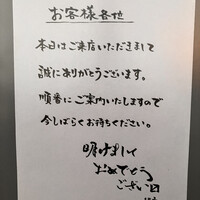 お客様各位
本日はご来店いただきまして
誠にありがとうございます。
順番にご案内いたしますので
今しばらくお待ちください。
明けまして
おめでとう
ござい